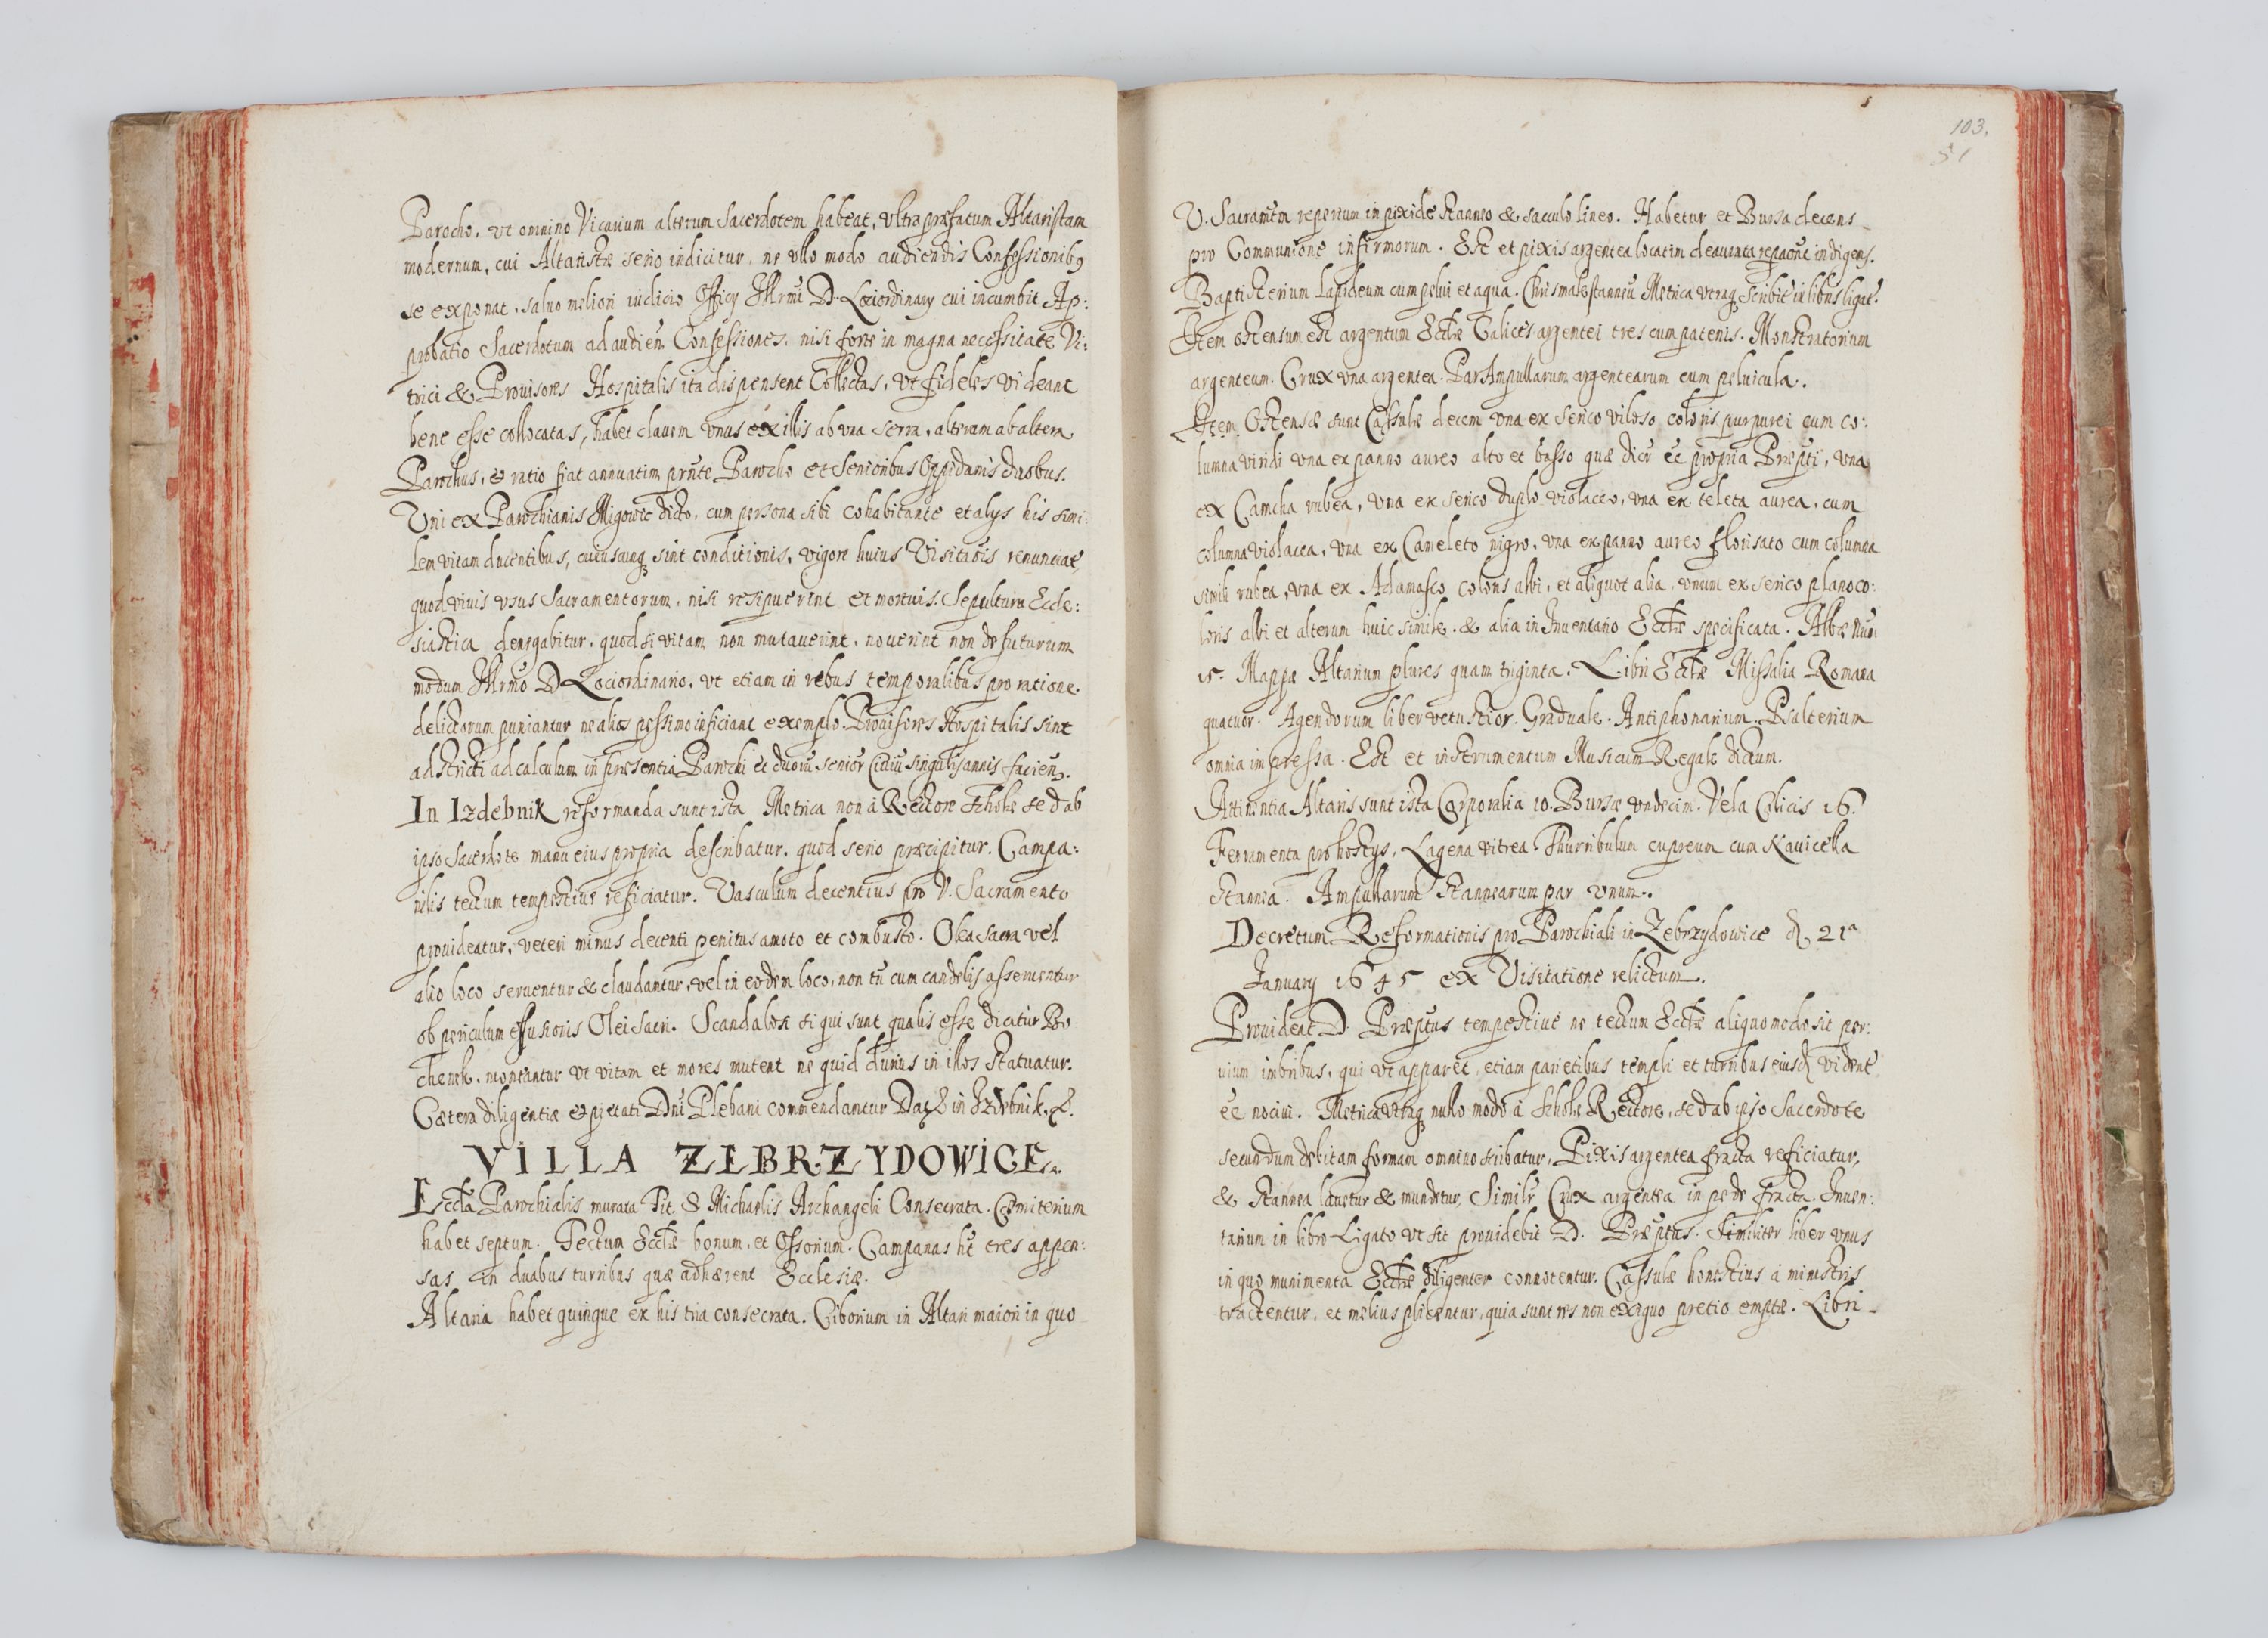 Parocho, vt omnino Vicarium alterum Sacerdotem habeat, vltra præfatum Altaristam
modernum, cui Altaristæ serio indicitur, ne vllo modo audiendis Confessionibꝫ
se exponat, saluo meliori iudicio Officij Illrmi D. Lociordinarij cui incumbit Ap:
probatio Sacerdotum ad audien. Confessiones, nisi forte in magna necessitate Vi:
trici & Prouisores Hospitalis ita dispensent Collectas, vt fideles videant
bene esse collocatas, habet clauem vnus ex illis ab vna serra, alteram ab altera
Parochus, & ratio fiat annuatim pnte Parocho et Senioribus Oppidanis duobus.
Vni ex Parochianis Migowic dicto, cum persona sibi cohabitante et alijs his simi:
lem vitam ducentibus, cuiuscunqꝫ sint conditionis, vigore huius Visitaois renunciat
quod viuis vsus Sacramentorum, nisi resipuerint et mortuis Sepultura Eccle:
siastica denegabitur, quod si vitam non mutauerint, nouerint non defuturum
modum Illrmo D Lociordinario, vt etiam in rebus temporalibus pro ratione
delictorum puniantur ne alios pessimo inficiant exemplo. Prouisores Hospitalis sint
adstricti ad calculum in præsentia Parochi et duoru senior Ciuiu singulis annis facien.
In Izdebnik reformanda sunt ista Metrica non à Rectore Scholæ sed ab
ipso Sacerdote manu eius propria describatur, quod serio præcipitur. Campa:
nilis tectum tempestiue reficiatur. Vasculum decentius pro V. Sacramento
prouideatur, veteri minus decenti penitus amoto et combusto. Olea sacra vel
alio loco seruentur & claudantur, vel in eodem loco, non tñ cum candelis asseruentur
ob periculum effusionis Olei Sacri. Scandalosi si qui sunt qualis esse dicitur Bo
chenek, moneantur vt vitam et mores mutent ne quid durius in illos statuatur.
Cætera diligentiæ & pietati Dni Plebani commendantur Dat in Izdebnik.
VILLA ZEBRZYDOWICE.
Eccla Parochialis murata Tit. S Michaelis Archangeli Consecrata. Cæmiterium
habet septum. Tectum Ecclæ bonum, et Ossorium. Campanas ht tres appen:
sas in duabus turribus quæ adhærent Ecclesiæ.
Altaria habet quinque ex his tria consecrata. Ciborium in Altari maiori in quo
103.
51
V. Sacramtm repertum in pixide stanneo & sacculo lineo. Habetur et Bursa decens
pro Communione infirmorum. Est et pixis argentea locatim deaurata repaone indigens.
Baptisterium Lapideum cum pelui et aqua. Chrismale stanneu Metrica vtraqꝫ scribit in libris ligat.
Item ostensum est argentum Ecclæ Calices argentei tres cum patenis. Monstratorium
argenteum. Crux vna argentea. Par Ampullarum argentearum cum peluicula.
Item Ostensæ sunt Casulæ decem vna ex serico viloso coloris purpurei cum co:
lumna viridi vna ex panno aureo alto et basso quæ dicr ee propria Præpti, vna
ex Camcha rubea, vna ex serico duplo violaceo, vna ex teleta aurea, cum
columna violacea, vna ex Cameleto nigro, vna ex panno aureo florisato cum columna
simili rubea, vna ex Adamasco coloris albi, et aliquot alia, vnum ex serico plano co:
loris albi et alterum huic simile. & alia in Inuentario Ecclæ specificata. Albæ nu
15. Mappæ Altarium plures quam triginta. Libri Ecclæ Missalia Romana
quatuor. Agendorum liber vetustior. Graduale. Antiphonarium. Psalterium
omnia impressa. Est et instrumentum Musicum Regale dictum.
Attinentia Altaris sunt ista Corporalia 10. Bursæ vndecim. Vela Calicis 16.
Ferramenta pro hostijs, Lagena vitrea. Thurribulum cupreum cum Nauicella
stannea. Ampullarum stannearum par vnum.
Decretum Reformationis pro Parochiali in Zebrzydowice d 21ª
January 1645 ex Visitatione relictum.
Prouideat D. Præptus tempestiue ne tectum Ecclæ aliquo modo sit per:
uium imbribus, qui vt apparet etiam parietibus templi et turribus eiusd vident
ee nociui. Metrica vtraqꝫ nullo modo à Scholæ Rectore, sed ab ipso Sacerdote
secundum debitam formam omnino scribatur, Pixis argentea fracta reficiatur,
& stannea lauetur & mundetur, Similr Crux argentea in pede fracta. Inuen:
tarium in libro Ligato vt sit prouidebit D. Præptus. Similiter liber vnus
in quo munimenta Ecclæ diligenter connotentur. Casulæ honestius à ministris
tractentur, et melius plicentur, quia sunt res non exiguo pretio emptæ. Libri